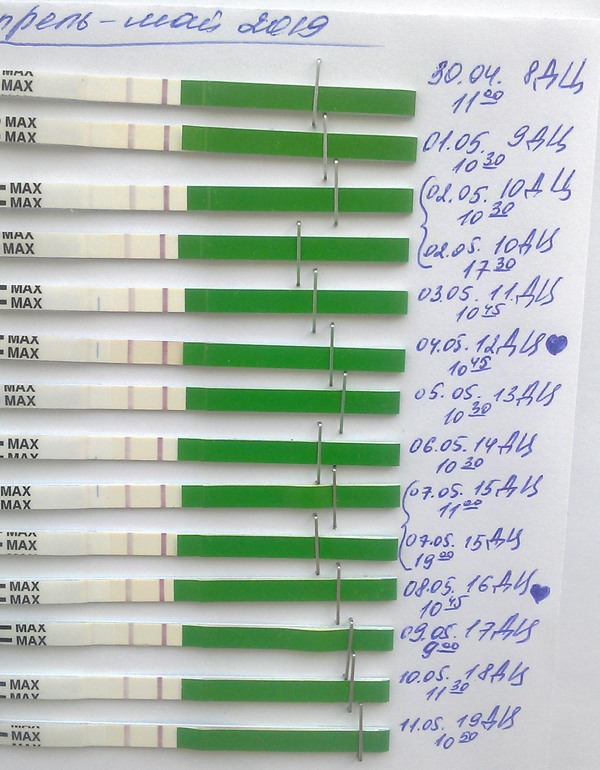 апрель-май 2019
MAX
MAX
30.04. 8ДЦ
11 00
MAX
MAX
01.05. 9ДЦ
10 30
MAX
MAX
02.05. 10ДЦ
10 30
MAX
MAX
02.05. 10ДЦ
17 30
MAX
MAX
03.05. 11ДЦ
10 45
MAX
MAX
04.05. 12ДЦ
10 45
MAX
MAX
05.05. 13ДЦ
10 30
MAX
MAX
06.05. 14ДЦ
10 30
MAX
07.05. 15ДЦ
11 00
MAX
MAX
07.05. 15ДЦ
19 00
MAX
MAX
08.05. 16ДЦ
10 45
MAX
MAX
09.05. 17ДЦ
9 00
MAX
MAX
10.05. 18ДЦ
11 30
MAX
MAX
11.05. 19ДЦ